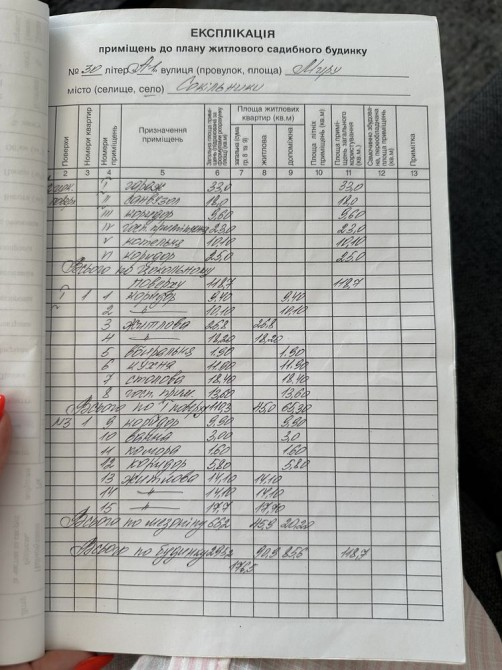 ЕКСПЛІКАЦІЯ
приміщень до плану житлового садибного будинку
№ 30 літер А-1 вулиця (провулок, площа)
місто (селище, село) Сокільники
Поверхи Номери квартир Номери приміщень Призначення приміщень Площа житлових квартир (кв.м) житлова допоміжна Площа літніх приміщень (кв.м) Площа приміщень загального користування (кв.м) Примітка
2 3 4 5 6 7 8 9 10 11 12 13
І гараж 33,0 33,0
ІІ санвузол 18,0 18,0
ІІІ коридор 9,60 9,60
IV госп. приміщення 23,0 23,0
V котельня 10,10 10,10
VI коридор 25,0 25,0
Всього по цокольному
поверху 118,7 118,7
І 1 1 коридор 9,40 9,40
2 —"— 10,10 10,10
3 житлова 26,8 26,8
4 —"— 18,20 18,20
5 вбиральня 1,90 1,90
6 кухня 11,90 11,90
7 столова 18,40 18,40
8 госп. прим. 13,60 13,60
Всього по І повер. 110,3 45,0 65,30
МЗ 1 9 коридор 9,90 9,90
10 ванна 3,00 3,0
11 комора 1,60 1,60
12 коридор 5,80 5,80
13 житлова 14,10 14,10
14 —"— 14,10 14,10
15 —"— 17,7 17,70
Всього по мезоніну 66,2 45,9 20,20
Всього по будинку 295,2 90,9 85,6 118,7
176,5